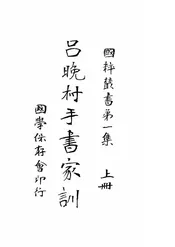 國粹叢書第一集
上冊
呂晚村手書家訓
國學保存會印行